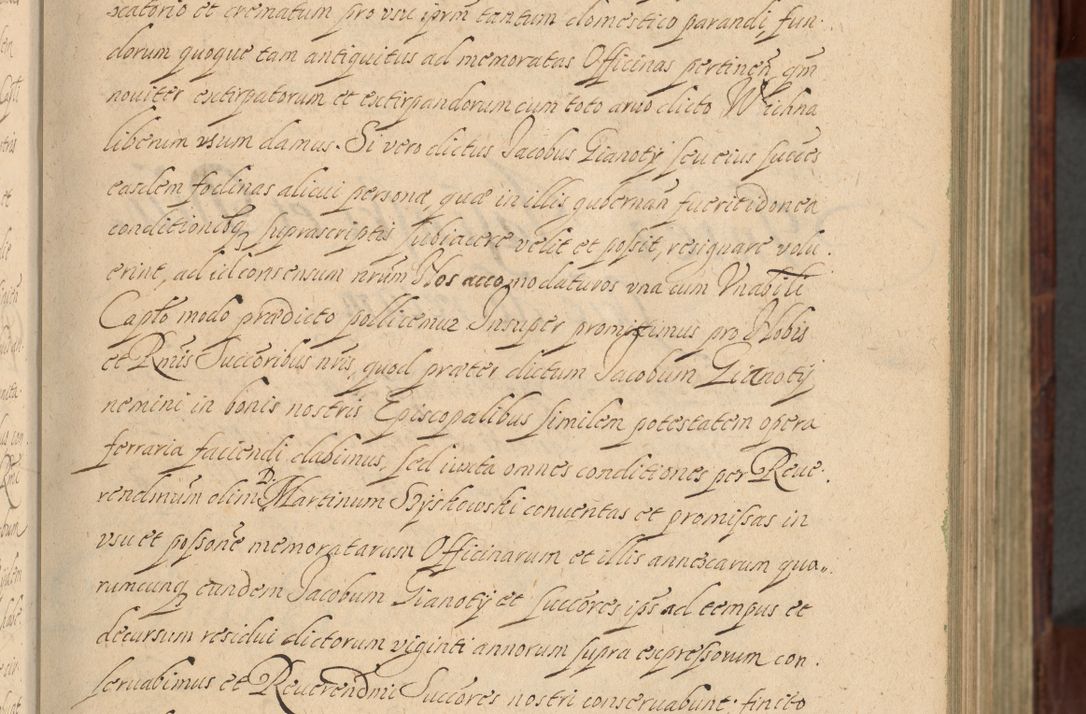 scatorio et crematum pro vsu ipm̃ tantum domestico parandi, fun-
dorum quoque tam antiquitus ad memoratas Officinas pertineñ qm̃
nouiter extirpatorum et extirpandorum cum toto aruo dicto Wichna
liberum vsum damus. Si vero dictus Jacobus Gianoty seu eius succes
easdem fodinas alicui personæ, quæ in illis gubernañ fuerit idonea
conditionibq suprascriptis subiacere velit et possit, resignare volu-
erint, ad id consensum nrũm Nos accommodaturos vna cum Vnabili
Capto modo prædicto pollicemur Insuper promittimus pro Nobis
et Rmis Succoribus nris, quod præter dictum Jacobum Gianoty
nemini in bonis nostris Episcopalibus similem potestatem opera
ferraria faciendi dabimus, sed iuxta omnes conditiones per Reue-
rendissimum olim D. Martinum Szyskowski conuentas et promissas in
vsu et possone memoratarum Officinarum et illis annexarum qua-
rumcunq eundem Jacobum Gianoty et succores ips ad tempus et
decursum residui dictorum viginti annorum supra expressorum con-
seruabimus et Reuerendmi Succores nostri conseruabunt. finito